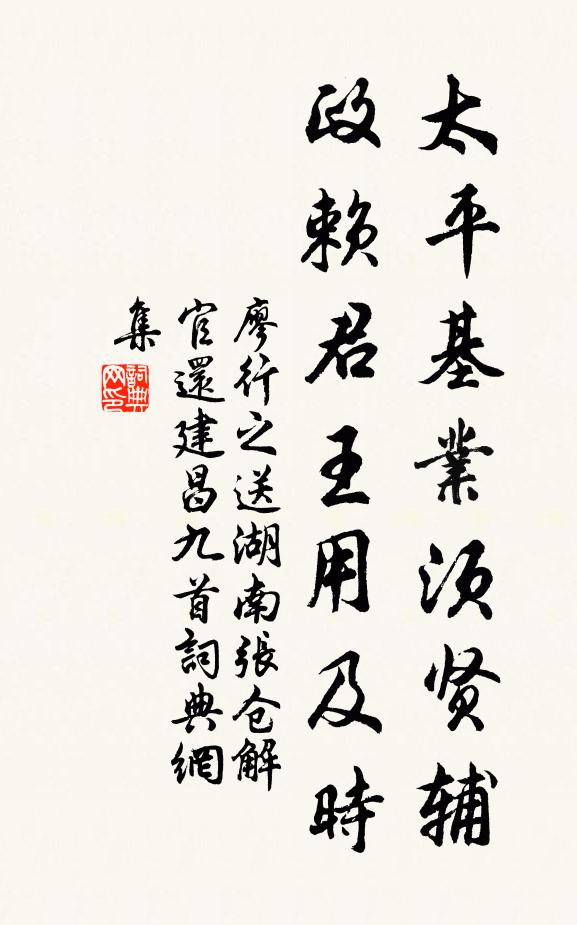 太平基業须贤辅
政赖君王用及時
廖行之送湖南張仓解
官還建昌九首詞典網
集
詞典
网印